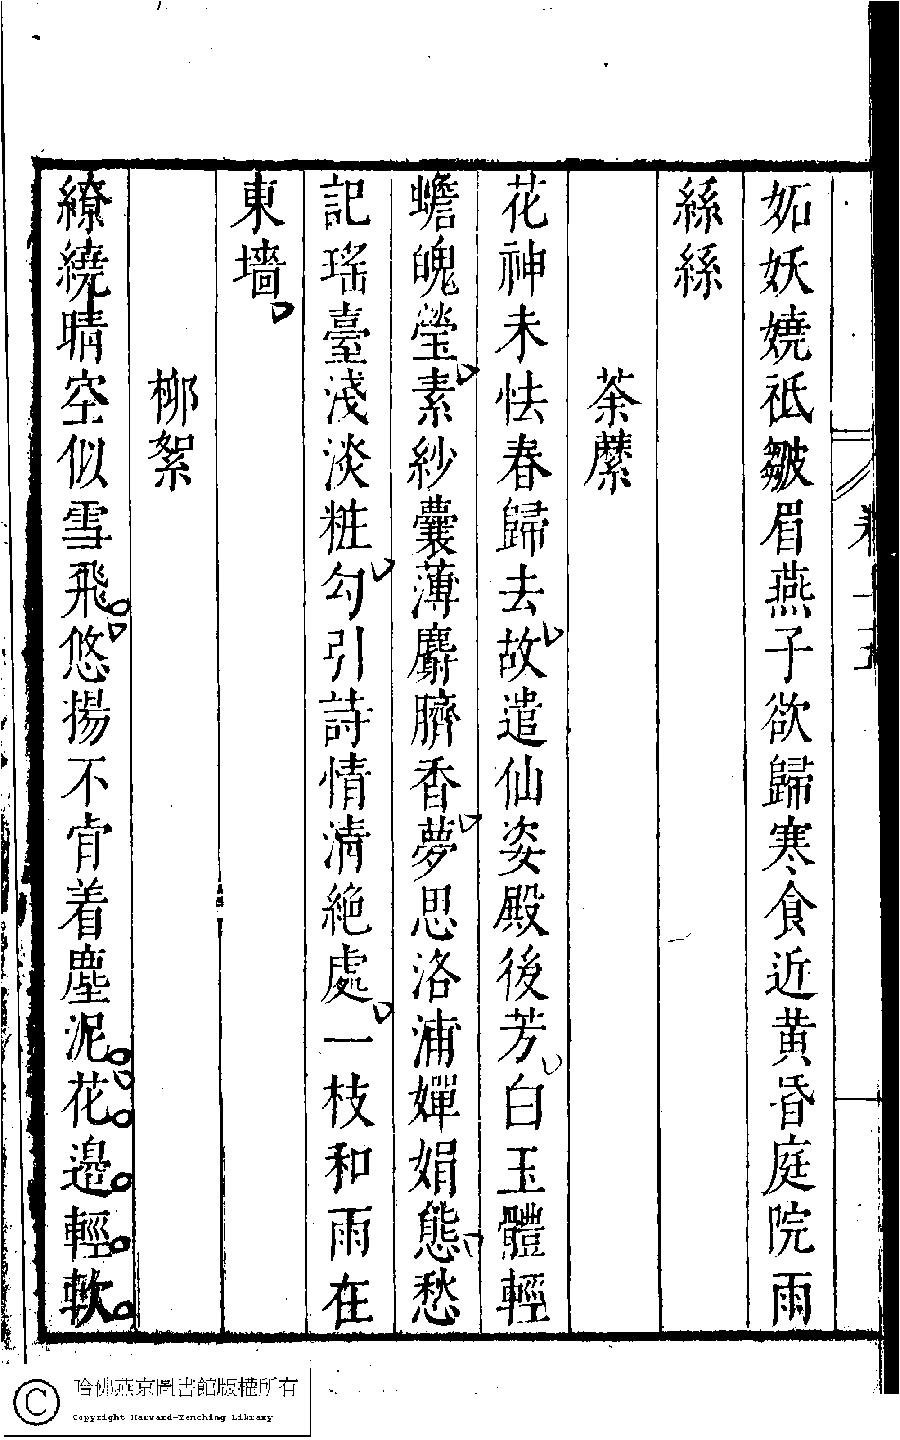 妬妖嬈祇皺眉燕子欲歸寒食近黄昏庭院雨
絲絲
荼蘼
花神未怯春歸去故遣仙姿殿後芳白玉體輕
蟾魄瑩素紗囊薄麝臍香夢思洛浦嬋娟態愁
記瑤臺淺淡粧勾引詩情清絶處一枝和雨在
東墻
柳絮
繚繞晴空似雪飛悠揚不肯着塵泥花邉輕軟
哈佛燕京圖書館版權所有
Copyright Harvard-Yenching Library